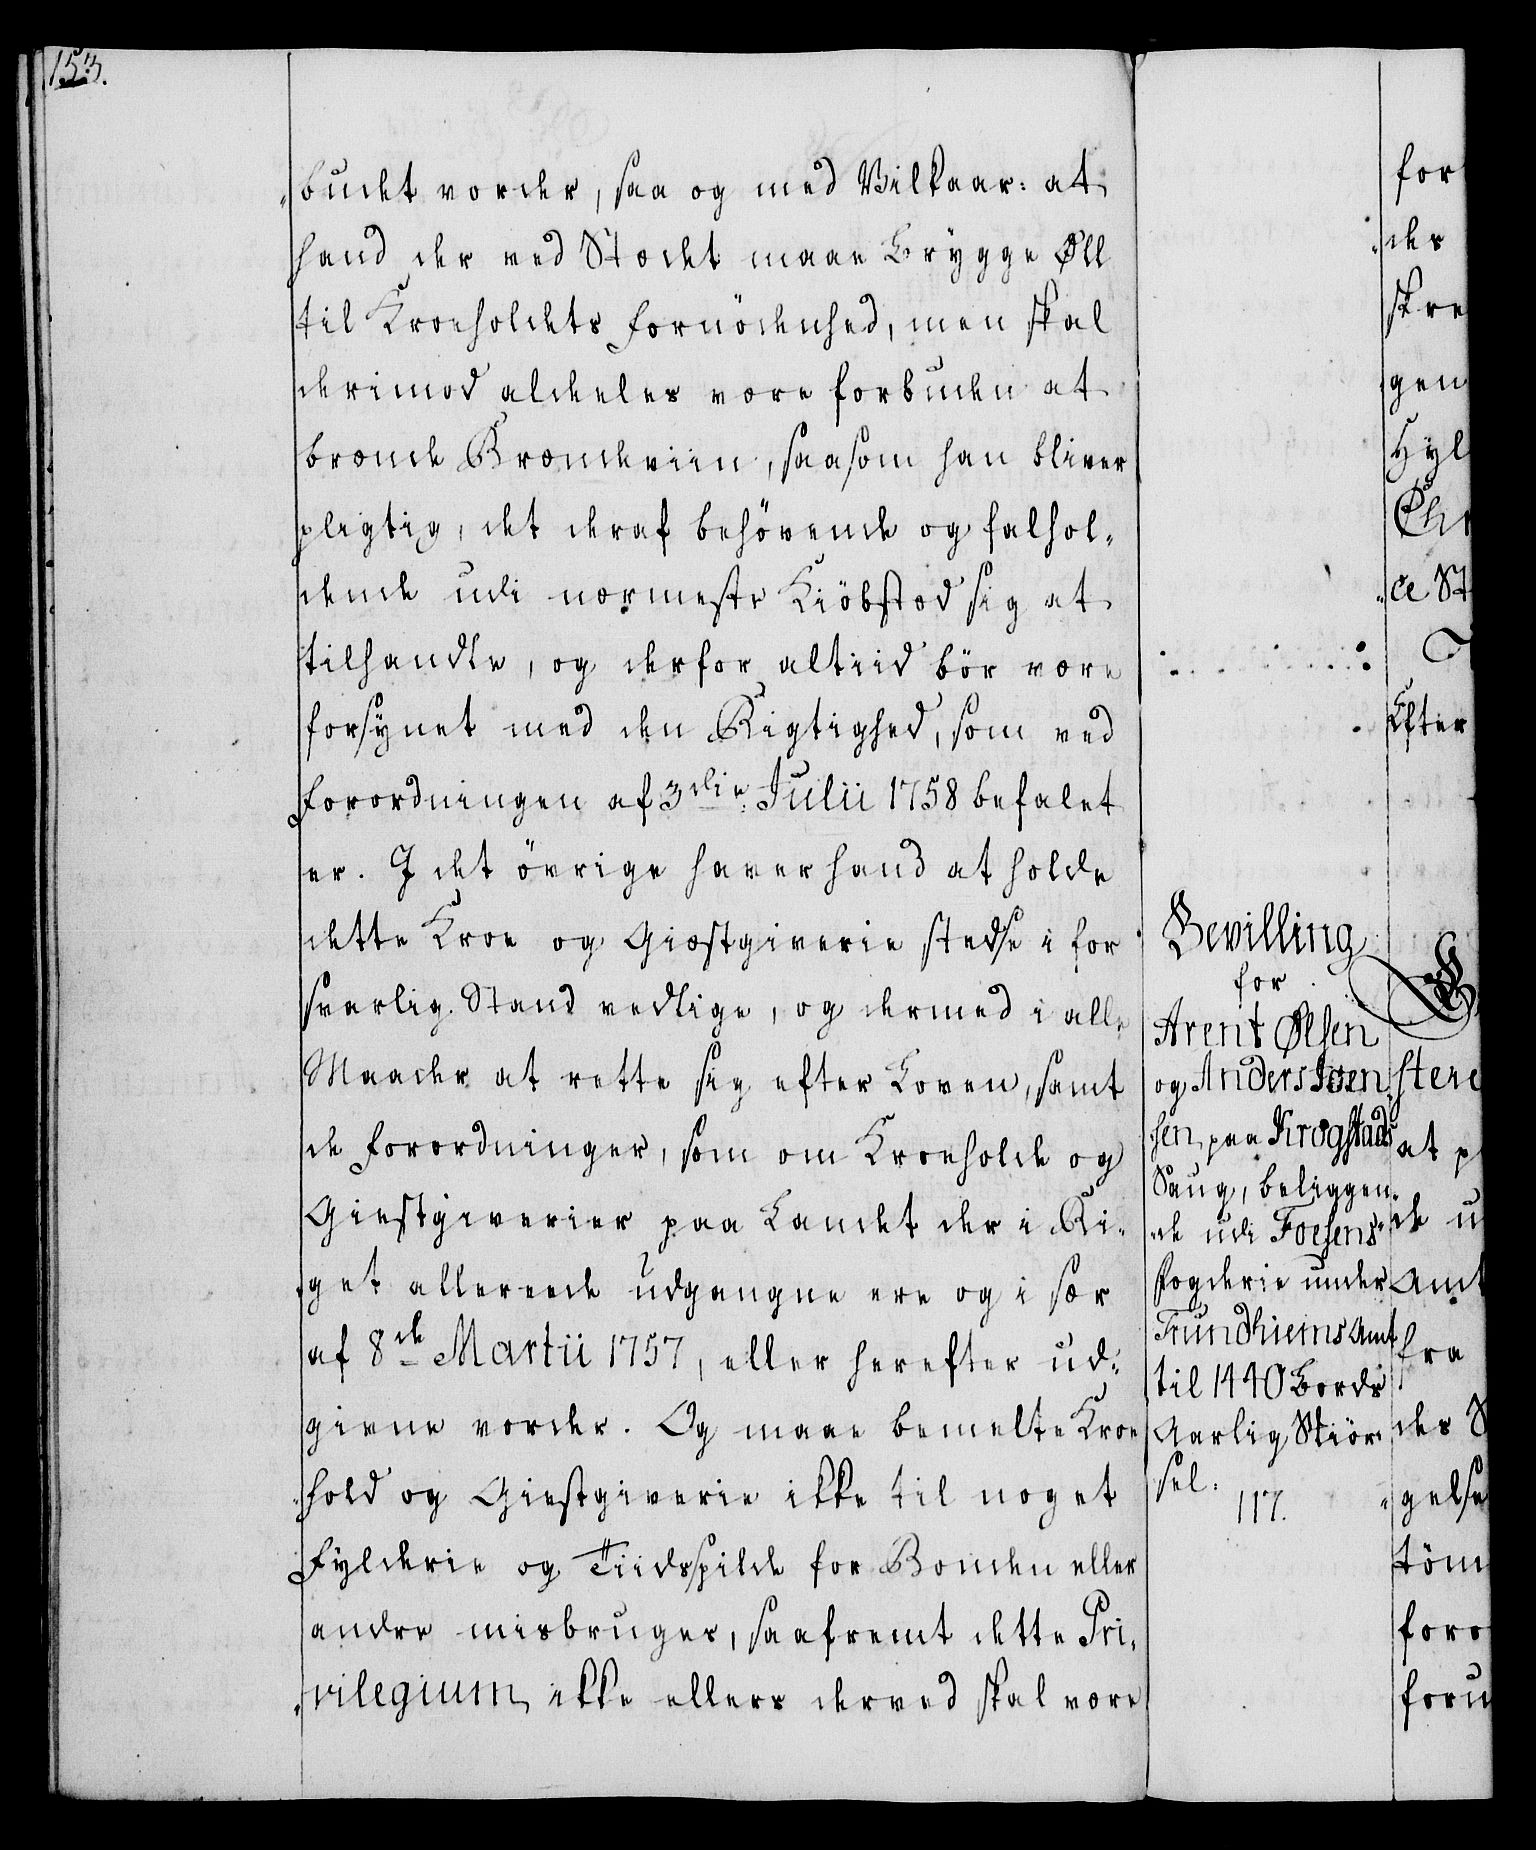 153.
„budet vorder, saa og med Vilkaar: at
hand der ved Stædet maae Brygge Øll
til Kroeholdets fornödenhed, men skal
derimod aldeeles være forbuden at
brænde Brændeviin, saasom han bliver
pligtig, det deraf behövende og falhol„
dende udi nærmeste Kiöbstæd sig at
tilhandle, og derfor altiid bör være
forsÿnet med den Rigtighed, som ved
forordningen af 3die Julii 1758 befalet
er. I det övrige haver hand at holde
dette Kroe og Giæstgiverie stedse i for
svarlig Stand vedlige, og dermed i alle
Maader at rette sig efter Loven, samt
de forordninger, som om Kroeholde og
Giestgiverier paa Landet der i Ri„
„get allereede udgangne ere og i sær
af 8de Martii 1757, eller herefter ud„
givne vorder. Og maae bemelte Kroe
„hold og Giestgiverie ikke til noget
Fylderie og Tiidsspilde for Bonden eller
andre misbruges, saafremt dette Pri„
„vilegium ikke ellers derved skal være
Bevilling
for
Arent Olsen
og Anders Iven
„sen paa Krogstads
Saug, beliggen„
„de udi Foesens
Fogderie under
Trundhiems Amt
til 1440 Bords
Aarlig Skiör
sel.
117.
for
„des
skre
gen
Hyl
Chr
„ce St
Efter
stere
at p
de u
Amt
fra
des S
„gelse
töm
foro
foru